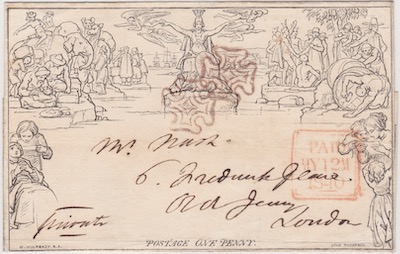 PAID
MY 12 M
1840
Mr. Nash.
6. Frederick Place.
Old Jewry
London
Private
POSTAGE ONE PENNY.
W. MULREADY. R.A.
JOHN THOMPSON